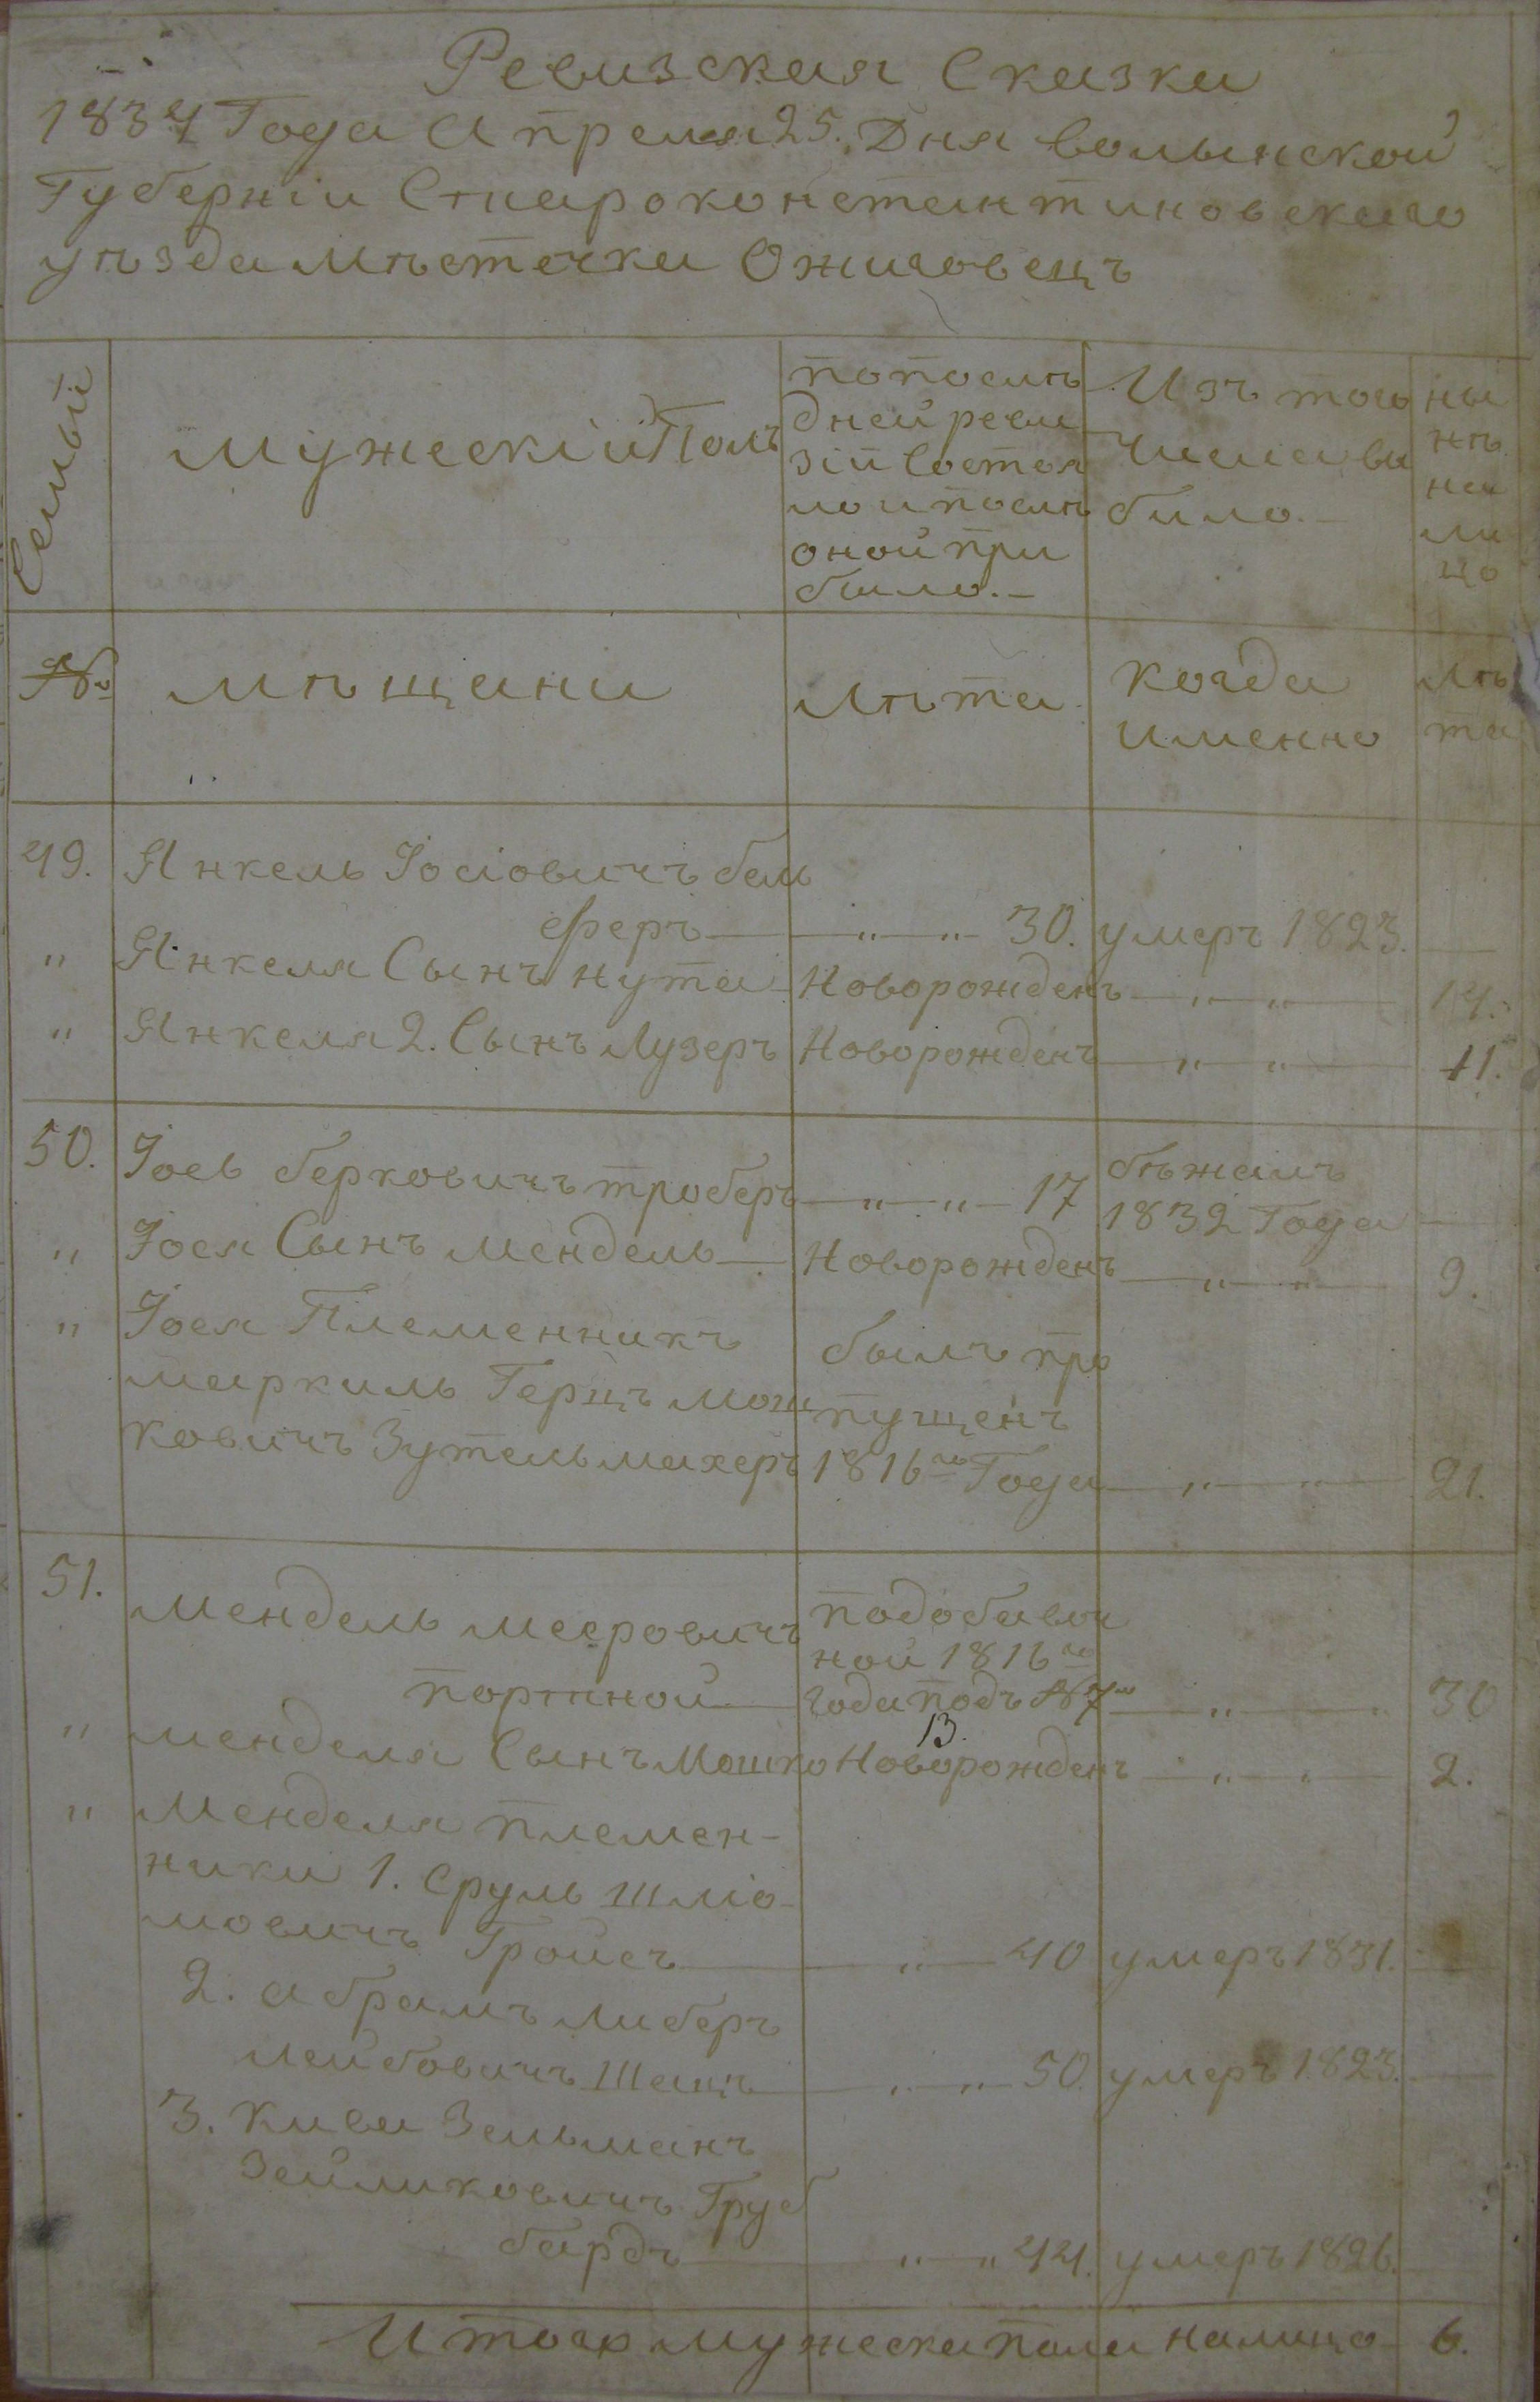 Ревизская Сказка
1834 Года Апреля 25. Дня Волынской
Губернiи Староконстантиновскаго
уѣзда мѣстечка Ожиговецъ
Семьи
мужескiй Полъ
попослѣ
дней реви
зiи Состоя
ло и послѣ
оной при
было.–
Изъ того
числа вы
било.–
ны
нѣ
на
ли
цо
№
мѣщани
лѣта
когда
именно
лѣ
та
49. Янкель Iосiовичъ бел
ферь — „ — „ — 30. умеръ 1823. —
„ Янкеля Сынъ нута Новорожденъ — „ — „ — 14.
„ Янкеля 2. Сынъ Лузеръ Новорожденъ — „ — „ — 11.
50. Iосъ берковичъ троберъ — „ — „ — 17 бѣжалъ
1832 Года —
„ Iося Сынъ мендель — Новорожденъ — „ — „ — 9.
„ Iося Племенникъ былъ про
маркиль Герцъ мош пущенъ
ковичъ Зутельмахеръ 1816го Года — „ — „ — 21.
51. Мендель мееровичъ подобавоч
ной 1816го
портной — года подъ №7мъ — „ — „ 30
13.
„ менделя Сынъ Мошко Новорожденъ — „ — „ — 2.
„ Менделя племен-
ники 1. Сруль Шлiо-
мовичъ Гройсъ — „ — 40 умеръ 1831. —
2. абрамъ либеръ
лейбовичъ Шацъ — „ — „ — 50. умеръ 1823. —
3. Кива Зельманъ
Зейликовичъ Груб
бардъ — „ — „ 44. умеръ 1826. —
Итого мужеска пола налицо 6.